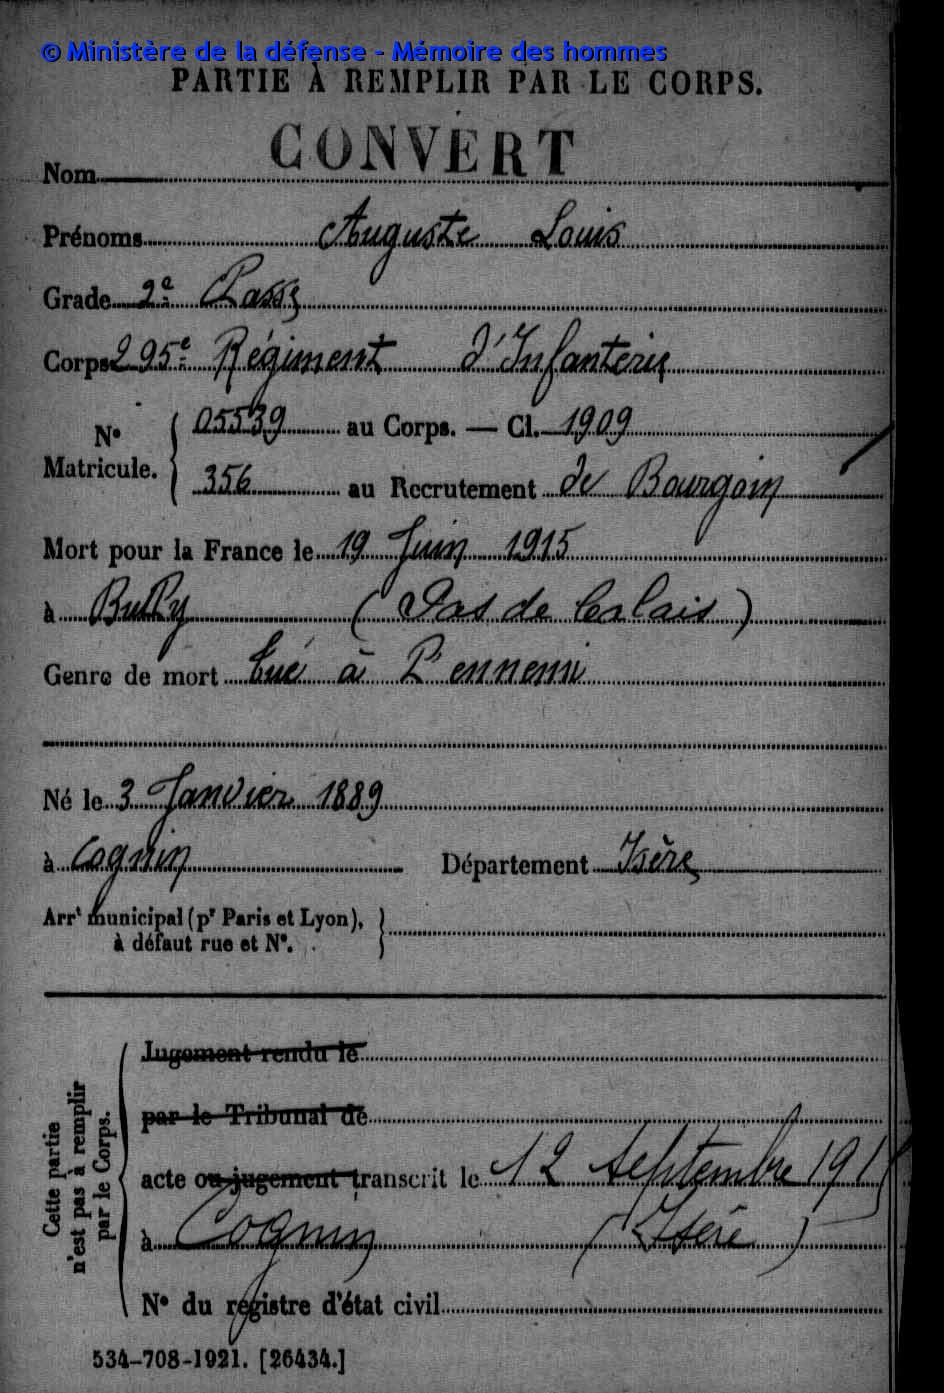 © Ministère de la défense - Mémoire des hommes
PARTIE À REMPLIR PAR LE CORPS.
Nom CONVERT
Prénoms Auguste Louis
Grade 2e Classe
Corps 295e Régiment d'Infanterie
N° Matricule. 05539 au Corps. — Cl. 1909
356 au Recrutement de Bourgoin
Mort pour la France le 19 Juin 1915
à Bully (Pas de Calais)
Genre de mort Tué à l'ennemi
Né le 3 Janvier 1889
à Cognin Département Isère
Arrt municipal (pr Paris et Lyon),
à défaut rue et N°.
Cette partie
n'est pas à remplir
par le Corps.
Jugement rendu le
par le Tribunal de
acte ou jugement transcrit le 12 septembre 1915
à Cognin (Isère)
N° du registre d'état civil
534-708-1921. [26434.]